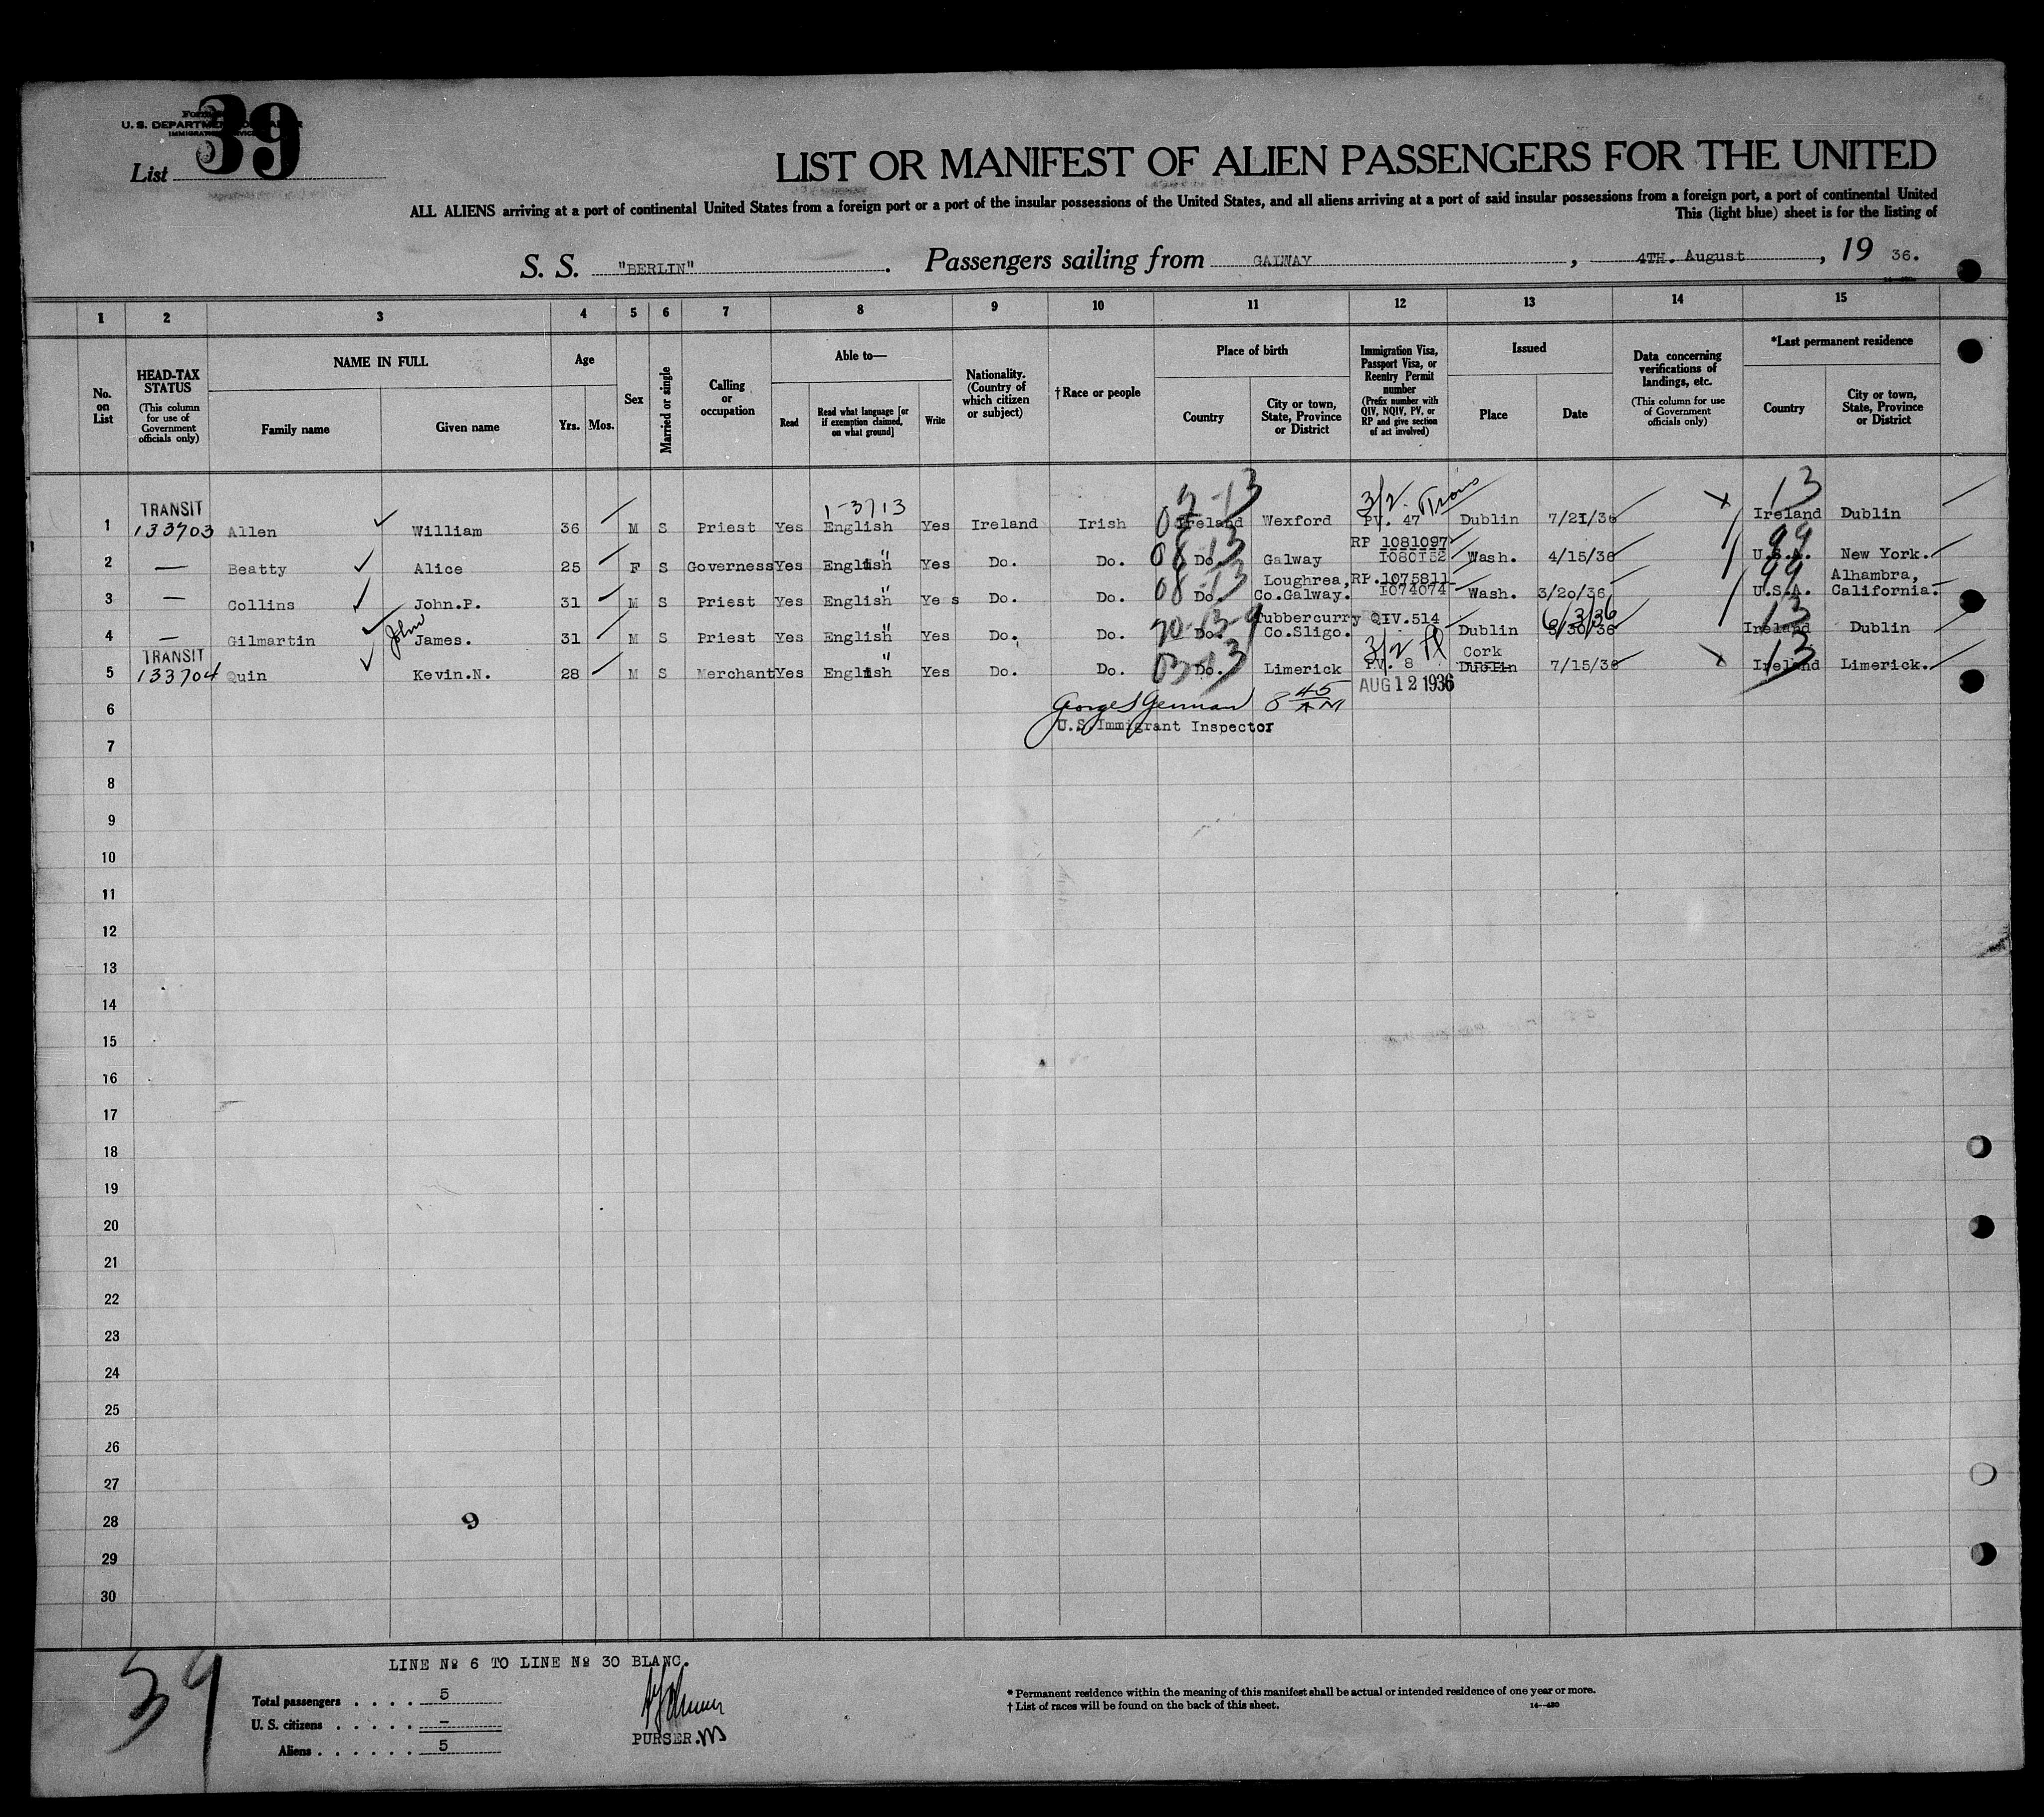 39
U. S. DEPARTMENT OF LABOR
IMMIGRATION SERVICE
List
LIST OR MANIFEST OF ALIEN PASSENGERS FOR THE UNITED
ALL ALIENS arriving at a port of continental United States from a foreign port or a port of the insular possessions of the United States, and all aliens arriving at a port of said insular possessions from a foreign port, a port of continental United
This (light blue) sheet is for the listing of
S. S. "BERLIN". Passengers sailing from GALWAY, 4TH. August, 19 36.
1 2 3 4 5 6 7 8 9 10 11 12 13 14 15
No. on List
HEAD-TAX STATUS
(This column for use of Government officials only)
NAME IN FULL
Family name
Given name
Age
Yrs. Mos.
Sex
Married or single
Calling or occupation
Able to—
Read
Read what language [or if exemption claimed, on what ground]
Write
Nationality. (Country of which citizen or subject)
†Race or people
Place of birth
Country
City or town, State, Province or District
Immigration Visa, Passport Visa, or Reentry Permit number
(Prefix number with QIV, NQIV, PV, or RP and give section of act involved)
Issued
Place
Date
Data concerning verifications of landings, etc.
(This column for use of Government officials only)
*Last permanent residence
Country
City or town, State, Province or District
TRANSIT 1-3713 13 3/2 Trans 13
1 133703 Allen William 36 M S Priest Yes English Yes Ireland Irish Ireland Wexford PV. 47 Dublin 7/21/36 Ireland Dublin
RP 1081097 99
2 — Beatty Alice 25 F S Governess Yes English " Yes Do. Do. 08-13 Do. Galway 1080152 Wash. 4/15/36 U.S.A. New York.
Loughrea, RP.1075811 99 Alhambra,
3 — Collins John.P. 31 M S Priest Yes English " Yes Do. Do. 08-13 Do. Co.Galway. 1074074 Wash. 3/20/36 U.S.A. California.
John Tubbercurry QIV.514 6/3/36 13
4 — Gilmartin James. 31 M S Priest Yes English " Yes Do. Do. 20-13-9 Do. Co.Sligo. Dublin 5/30/36 Ireland Dublin
TRANSIT 3/2 Cork 13
5 133704 Quin Kevin.N. 28 M S Merchant Yes English " Yes Do. Do. 03-13 Do. Limerick PV. 8 Dublin 7/15/36 Ireland Limerick.
AUG 12 1936
6 George German 8 45 AM
U.S Immigrant Inspector
7
8
9
10
11
12
13
14
15
16
17
18
19
20
21
22
23
24
25
26
27
28 9
29
30
LINE № 6 TO LINE № 30 BLANC.
39
Total passengers . . . . 5
U. S. citizens . . . . . —
Aliens . . . . . . 5
PURSER.
* Permanent residence within the meaning of this manifest shall be actual or intended residence of one year or more.
† List of races will be found on the back of this sheet.
14—480